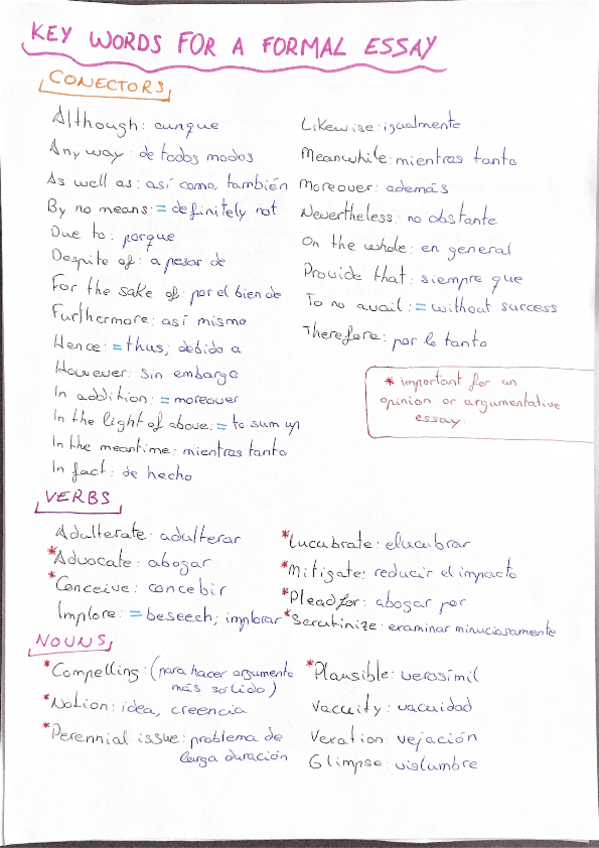 KEY WORDS FOR A FORMAL ESSAY
CONECTORS
Although: aunque
Any way: de todos modos
As well as: así como, también
By no means: = definitely not
Due to: porque
Despite of: a pesar de
For the sake of: por el bien de
Furthermore: así mismo
Hence: = thus, debido a
However: sin embargo
In addition: = moreover
In the light of above: = to sum up
In the meantime: mientras tanto
In fact: de hecho
Likewise: igualmente
Meanwhile: mientras tanto
Moreover: además
Nevertheless: no obstante
On the whole: en general
Provide that: siempre que
To no avail: = without success
Therefore: por lo tanto
* important for an
opinion or argumentative
essay.
VERBS
Adulterate: adulterar
*Advocate: abogar
*Conceive: concebir
Implore: = beseech; implorar
*Lucubrate: elucubrar
*Mitigate: reducir el impacto
*Plead for: abogar por
*Scrutinize: examinar minuciosamente
NOUNS
*Compelling: (para hacer argumento
más sólido)
*Notion: idea, creencia
*Perennial issue: problema de
larga duración
*Plausible: verosímil
Vacuity: vacuidad
Vexation: vejación
Glimpse: vislumbre